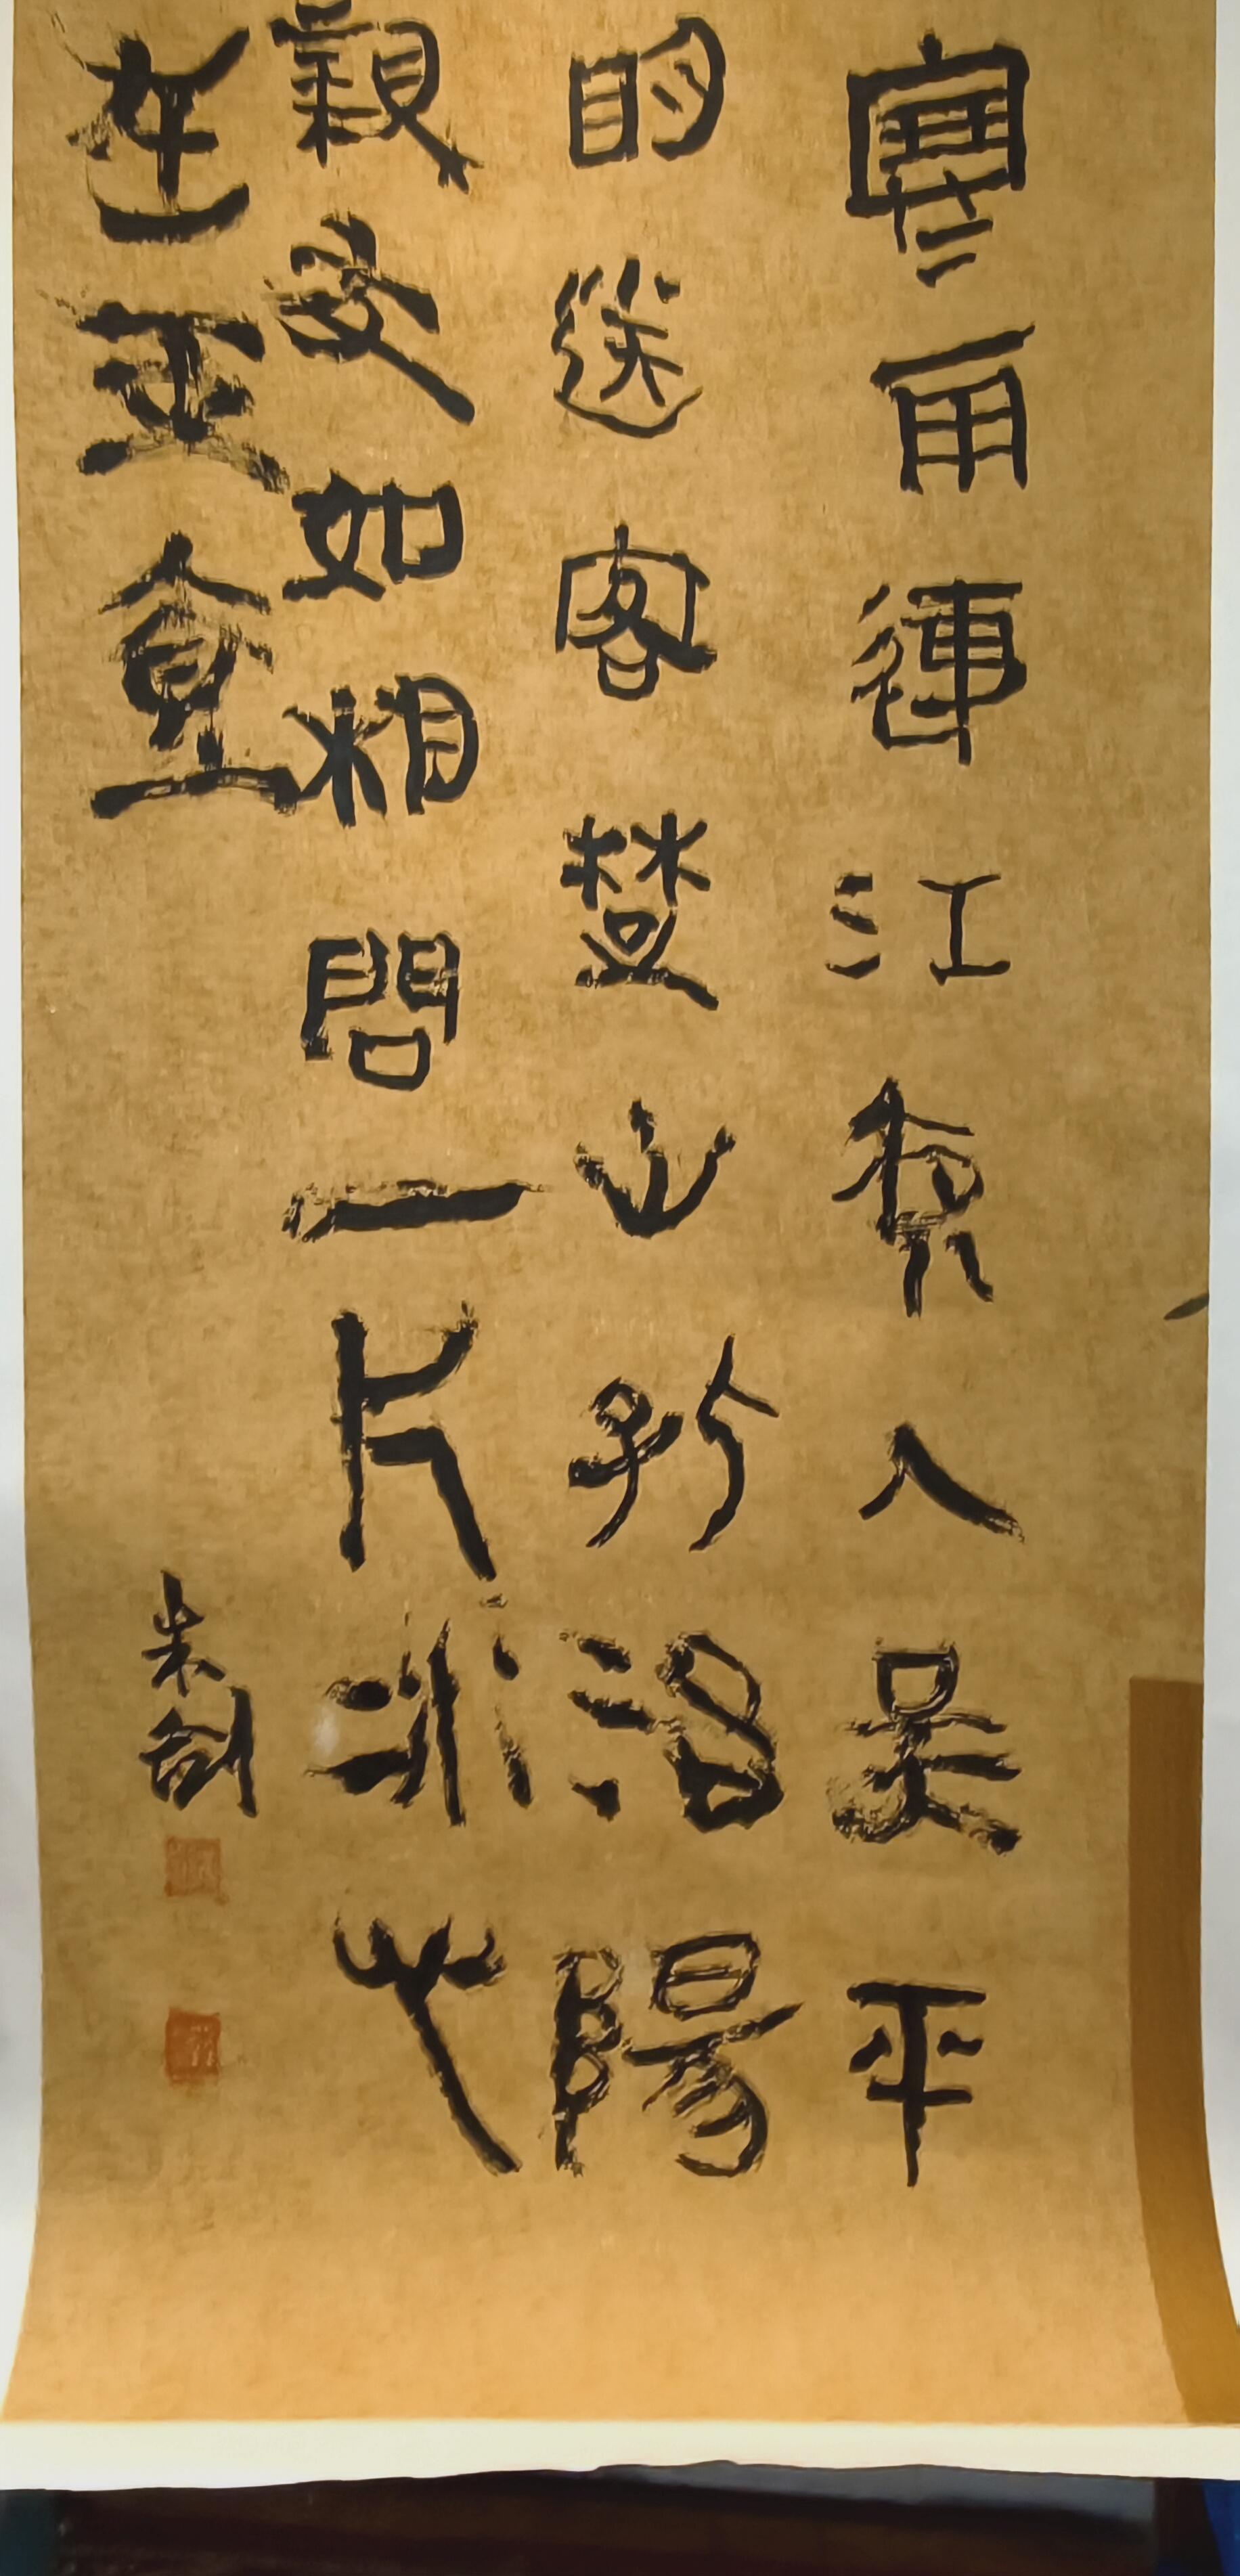 寒雨連江夜入吳平
明送客楚山孤洛陽
親友如相問一片冰心
在玉壺
朱